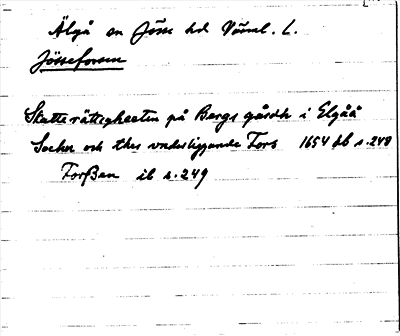 Älgå sn Jösse hd Värml. L.
Jösseforsen
Skatterättigheeten på Bergs gårdh i Elgåå
Sochn och thes underliggande Fors 1654 jb s. 248
Forßen ib s. 249